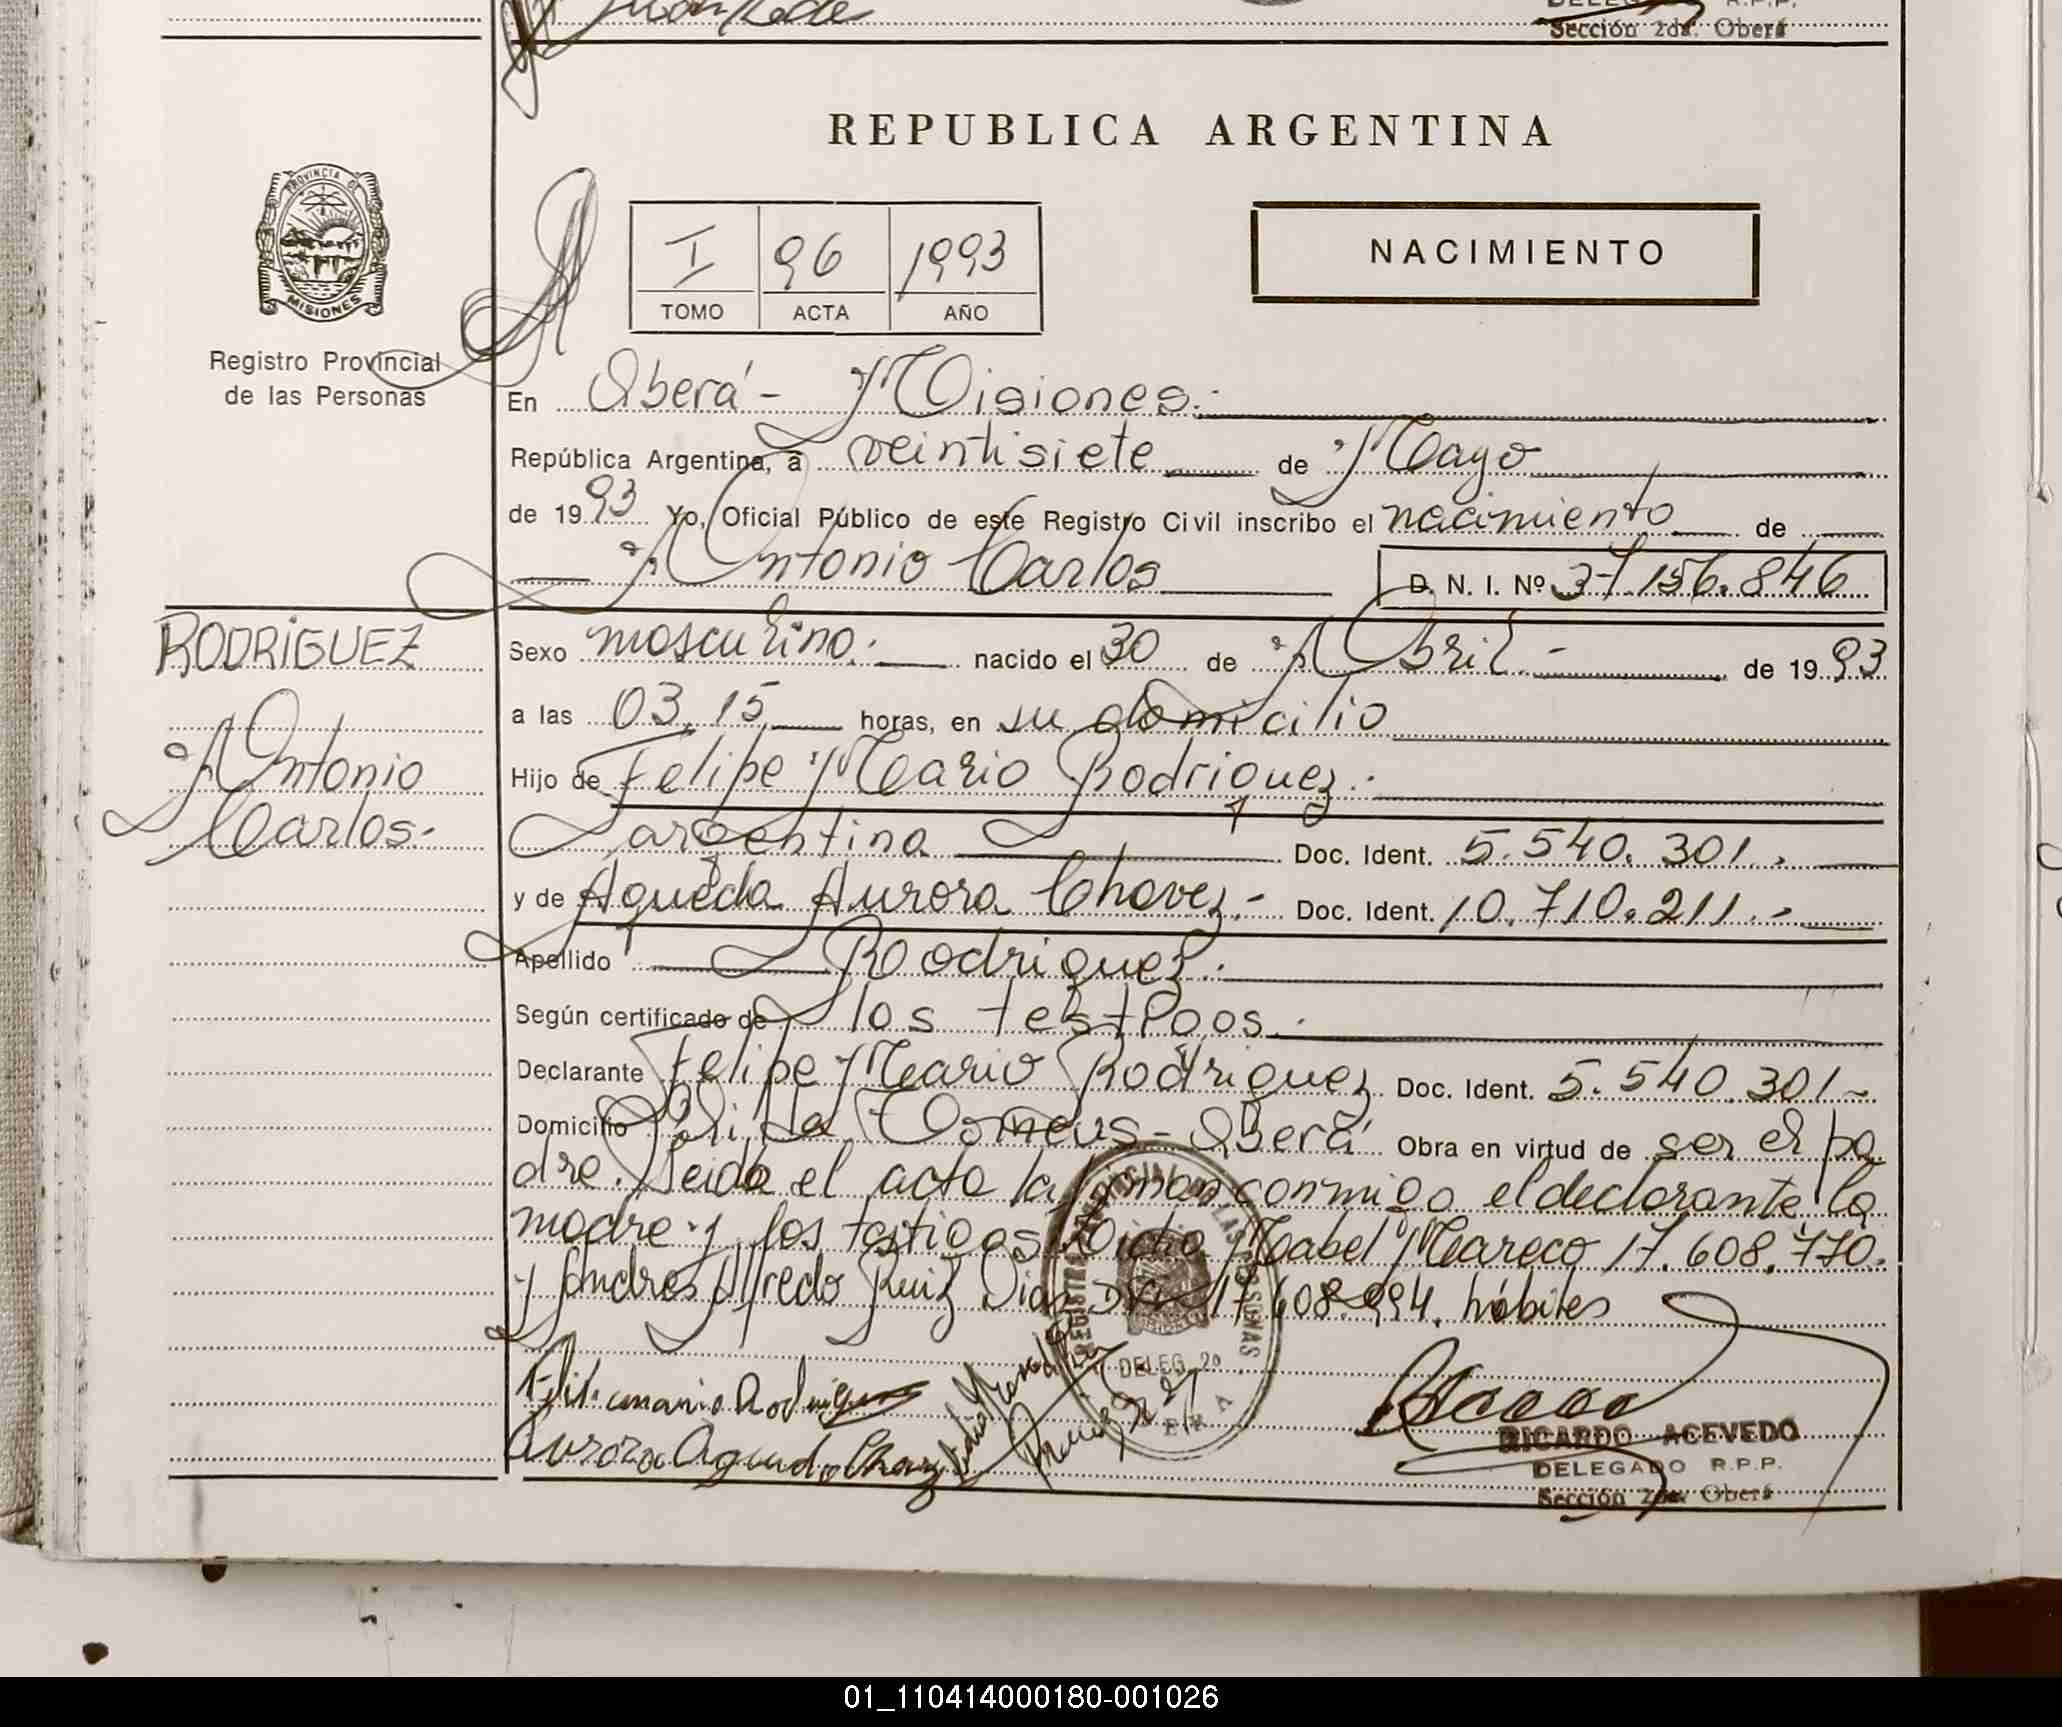 Sección 2da. Oberá
REPUBLICA ARGENTINA
PROVINCIA DE
MISIONES
Registro Provincial
de las Personas
I 96 1993
TOMO ACTA AÑO
NACIMIENTO
En Oberá - Misiones.-
República Argentina, a veintisiete de Mayo
de 1993 Yo, Oficial Público de este Registro Civil inscribo el nacimiento de
Antonio Carlos D. N. I. Nº 37.156.846
RODRIGUEZ
Antonio
Carlos.-
Sexo masculino.- nacido el 30 de Abril.- de 1993
a las 03.15 horas, en su domicilio
Hijo de Felipe Mario Rodriguez.-
argentina Doc. Ident. 5.540.301.
y de Agueda Aurora Chavez.- Doc. Ident. 10.710.211.-
Apellido Roodriguez.-
Según certificado de los testigos.-
Declarante Felipe Mario Rodriguez Doc. Ident. 5.540.301-
Domicilio Oberá Obra en virtud de ser el pa
dre. Leida el acta la firman conmigo el declarante la
madre y los testigos Mabel Mareco 17.608.770.
y Andres Alfredo Ruiz Dias DNI 17.608.994. hábiles
Aurora Agueda Chavez
DELEG. 2a
RICARDO ACEVEDO
DELEGADO R.P.P.
Sección 2da. Oberá
01_110414000180-001026